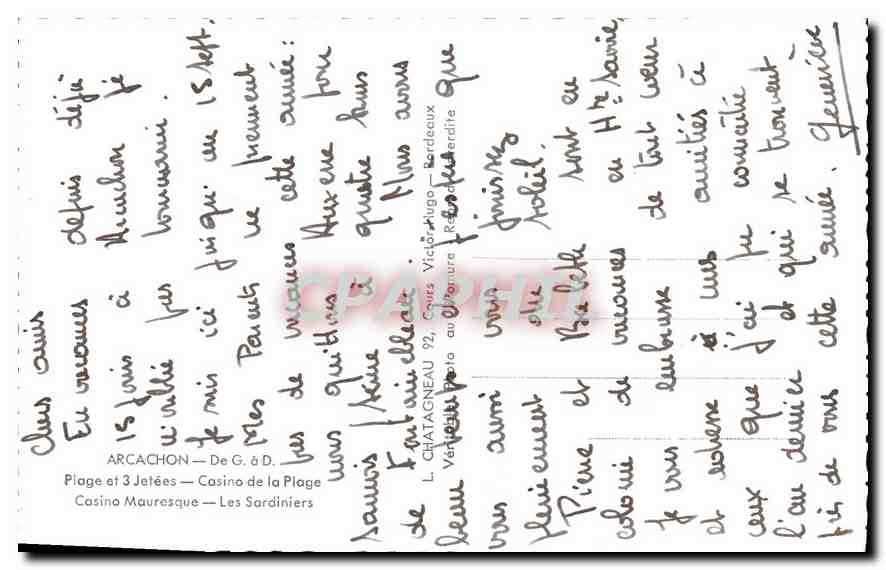 Chers amis
En vacances depuis déjà
15 jours à Arcachon je
n'oublie pas
Je suis ici jusqu'au 15 Sept.
Mes Parents ne prennent
pas de vacances cette année:
nous quittons Auxerre pour
Samois / Seine à quatre kms
de Fontainebleau. Nous avons
beau temps et j'espère que
vous aussi vous finissez
pleinement du soleil.
Pierre et sont en
colonie de vacances en Hte Savoie,
Je vous embrasse de tout cœur
et adresse à mes amitiés à
ceux que j'ai pu connaître
l'an dernier et qui se trouvent
près de vous cette année. Geneviève
ARCACHON — De G. à D.
Plage et 3 Jetées — Casino de la Plage
Casino Mauresque — Les Sardiniers
L. CHATAGNEAU 92, Cours Victor-Hugo — Bordeaux
Véritable Photo au Bromure - Reproduction interdite
CPAPHIL